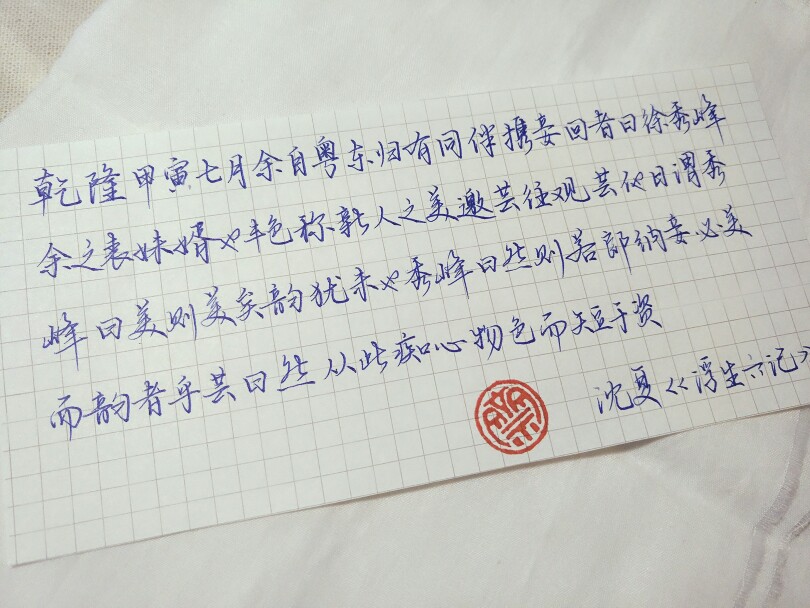 乾隆甲寅七月余自粤东归有同伴携妾回者曰徐秀峰
余之表妹婿也艳称新人之美邀芸往观芸他日谓秀
峰曰美则美矣韵犹未也秀峰曰然则若郎纳妾必美
而韵者乎芸曰然从此痴心物色而短于资
沈复《浮生六记》